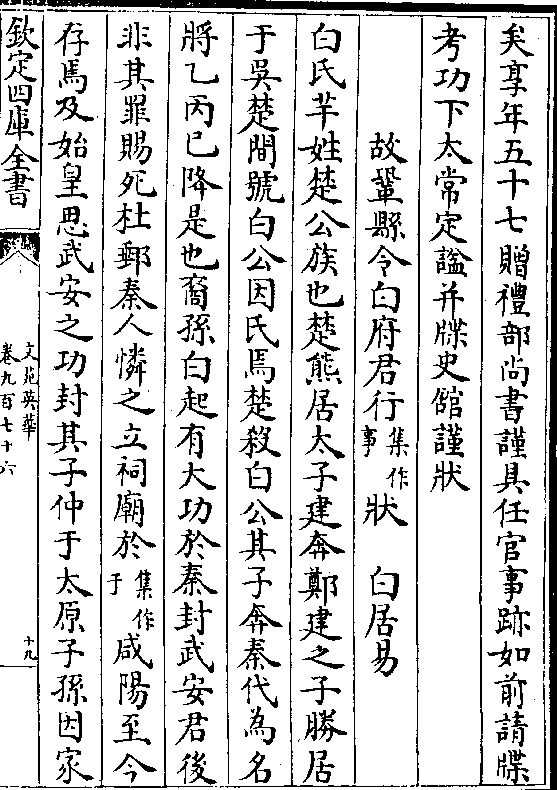 矣享年五十七贈禮部尚書謹具任官事跡如前請牒
考功下太常定諡并牒史館謹狀
故鞏縣令白府君行集作事狀 白居易
白氏芊姓楚公族也楚熊居太子建奔鄭建之子勝居
于吳楚間號白公因氏焉楚殺白公其子奔秦代為名
將乙丙已降是也裔孫白起有大功於秦封武安君後
非其罪賜死杜郵秦人憐之立祠廟於集作于咸陽至今
存焉及始皇思武安之功封其子仲于太原子孫因家
欽定四庫全書
文苑英華
卷九百七十六
十九